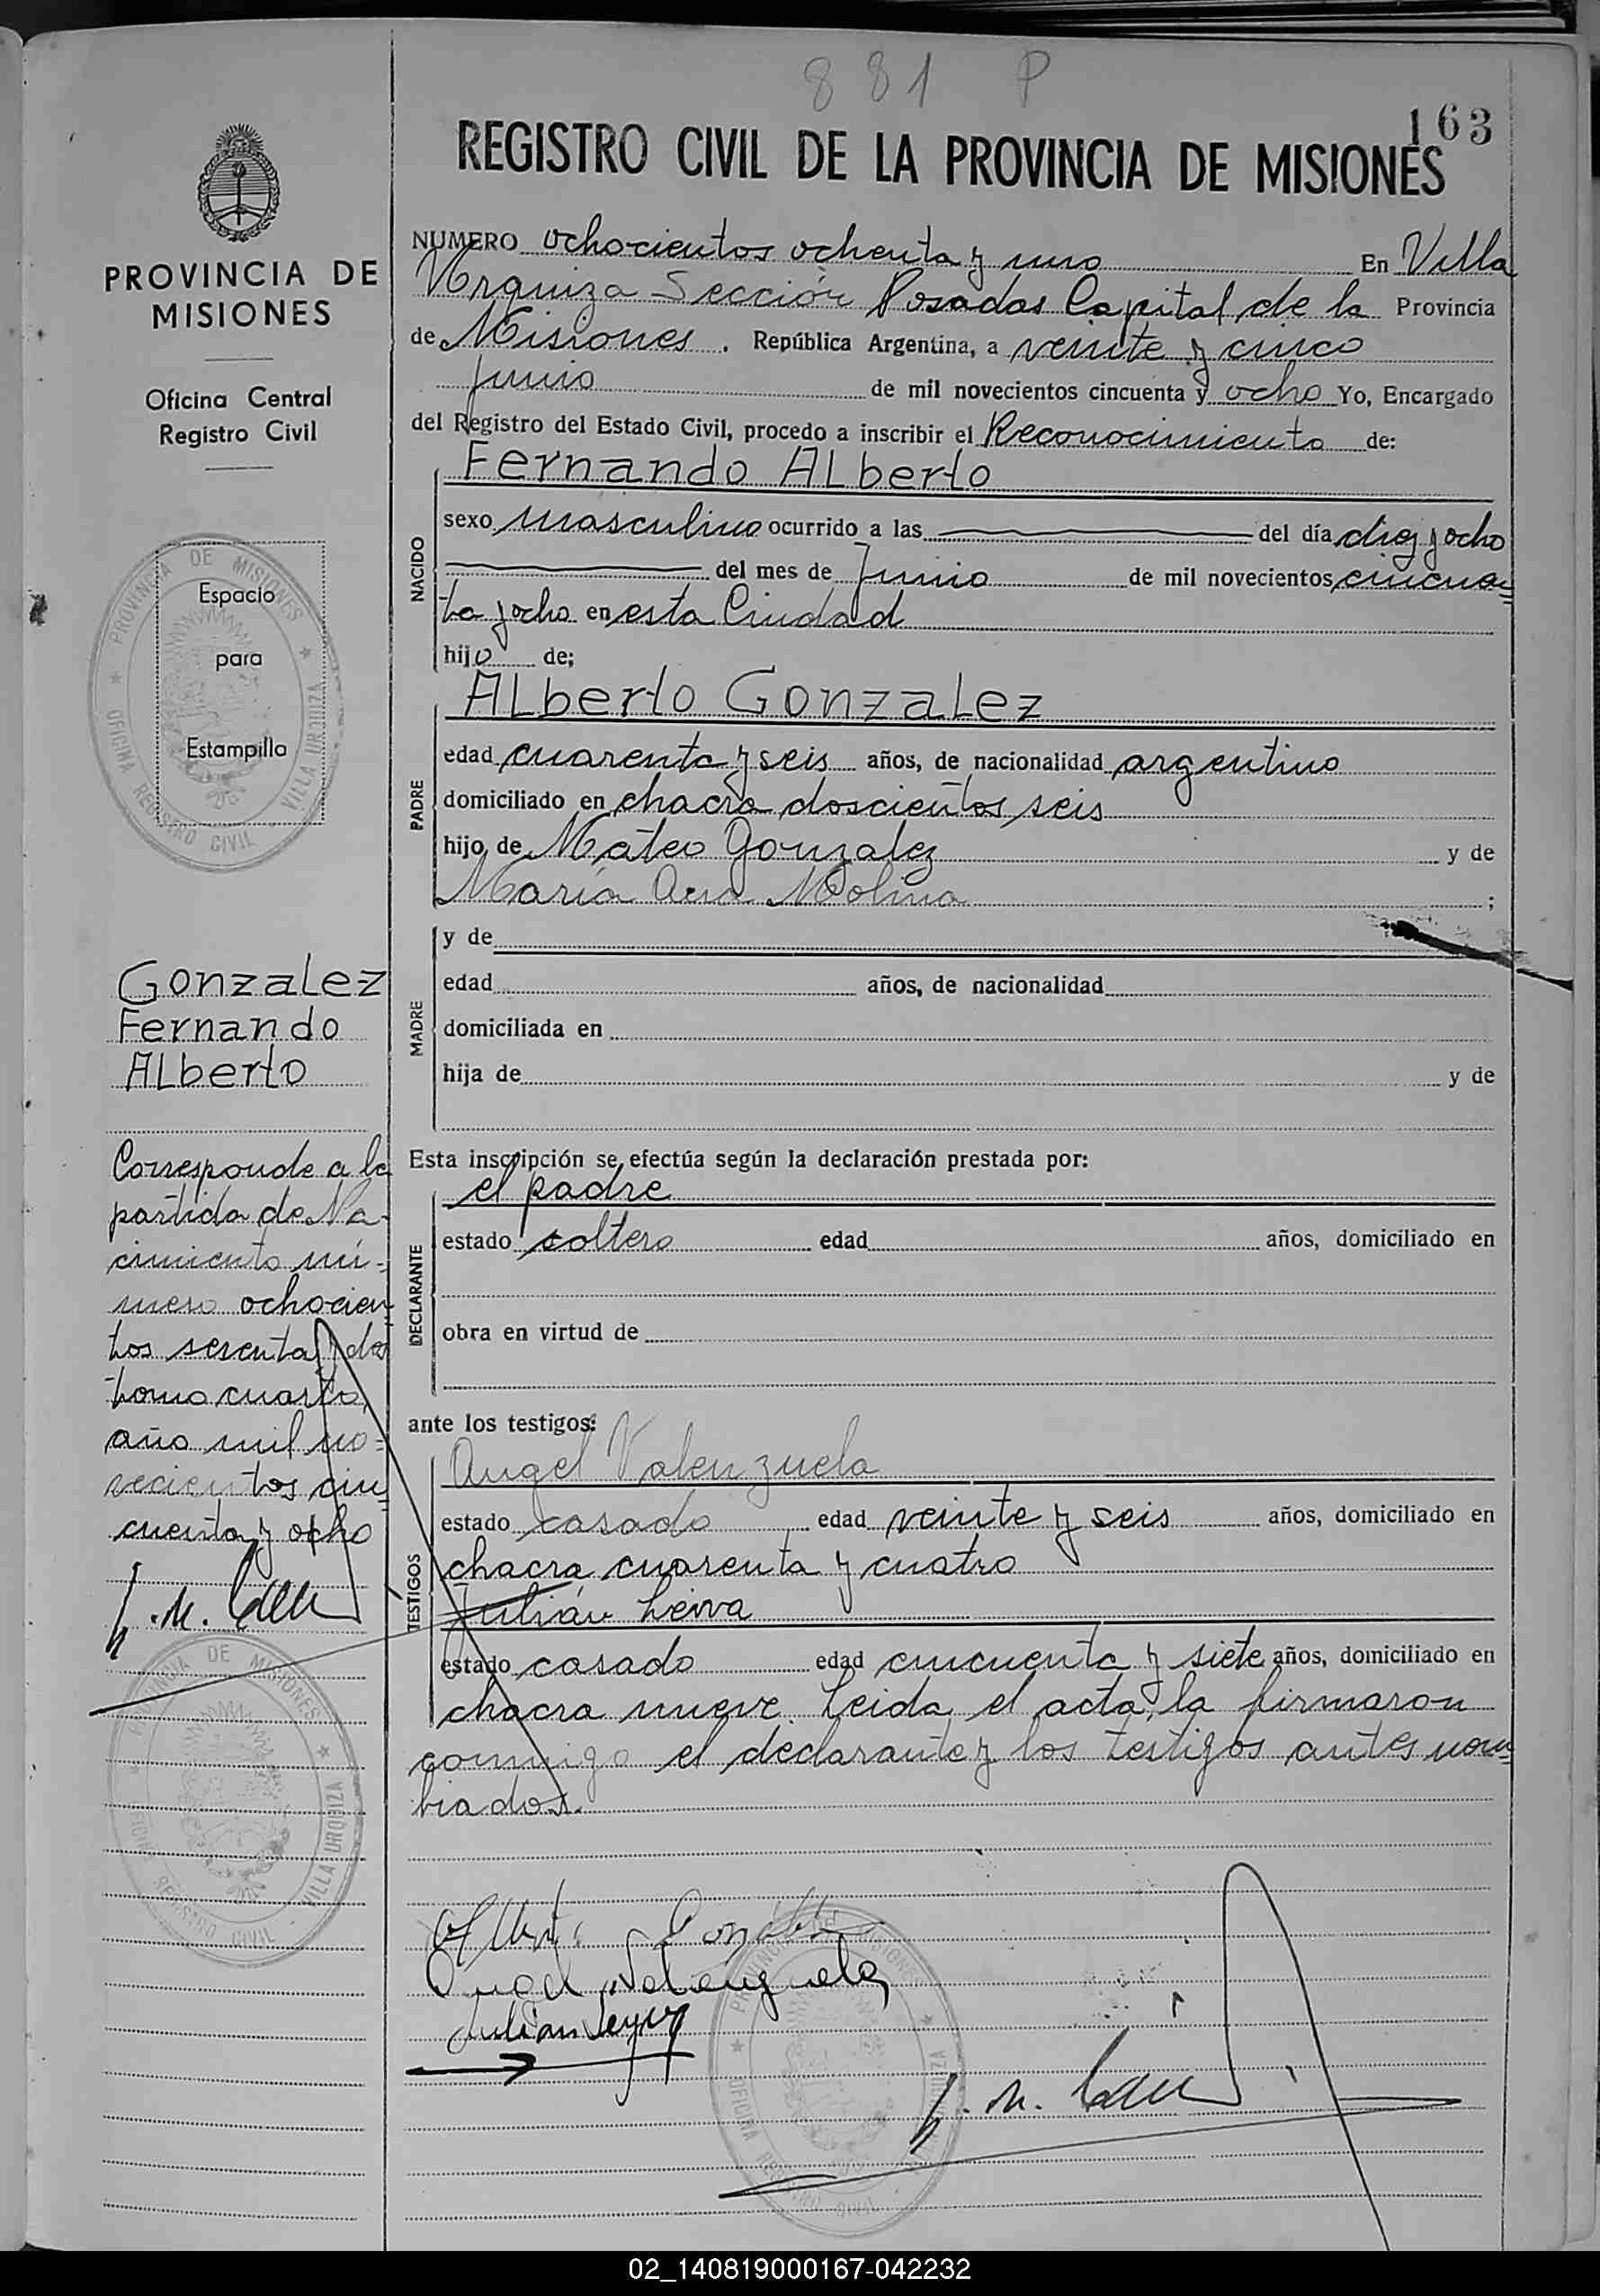 881 P
163
REGISTRO CIVIL DE LA PROVINCIA DE MISIONES
PROVINCIA DE
MISIONES
Oficina Central
Registro Civil
NUMERO ochocientos ochenta y uno En Villa
Urquiza Sección Posadas Capital de la Provincia
de Misiones. República Argentina, a veinte y cinco
junio de mil novecientos cincuenta y ocho Yo, Encargado
del Registro del Estado Civil, procedo a inscribir el Reconocimiento de:
NACIDO
Fernando Alberto
sexo masculino ocurrido a las del día diez y ocho
del mes de Junio de mil novecientos cincuen=
ta y ocho en esta Ciudad
hijo de;
PADRE
Alberto Gonzalez
edad cuarenta y seis años, de nacionalidad argentino
domiciliado en chacra doscientos seis
hijo de Mateo Gonzalez y de
María Ana Molina ;
MADRE
y de
edad años, de nacionalidad
domiciliada en
hija de y de
Esta inscripción se efectúa según la declaración prestada por:
DECLARANTE
el padre
estado soltero edad años, domiciliado en
obra en virtud de
ante los testigos:
TESTIGOS
Angel Valenzuela
estado casado edad veinte y seis años, domiciliado en
chacra cuarenta y cuatro
Julián Leiva
estado casado edad cincuenta y siete años, domiciliado en
chacra nueve. Leida el acta, la firmaron
conmigo el declarante y los testigos antes nom=
brados.
Angel Valenzuela
Julian
Espacio
para
Estampilla
PROVINCIA DE MISIONES
OFICINA REGISTRO CIVIL VILLA URQUIZA
Gonzalez
Fernando
Alberto
Corresponde a la
partida de Na-
cimiento nú-
mero ochocien
tos setenta y dos
tomo cuarto,
año mil no=
vecientos cin
cuenta y ocho
PROVINCIA DE MISIONES
OFICINA REGISTRO CIVIL VILLA URQUIZA
PROVINCIA DE MISIONES
OFICINA REGISTRO CIVIL
02_140819000167-042232